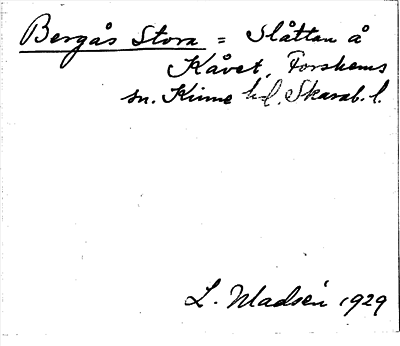 Bergås Stora = Slåttan å
Kåvet, Forshems
sn. Kinne hd, Skarab. l.
L. Madsén 1929